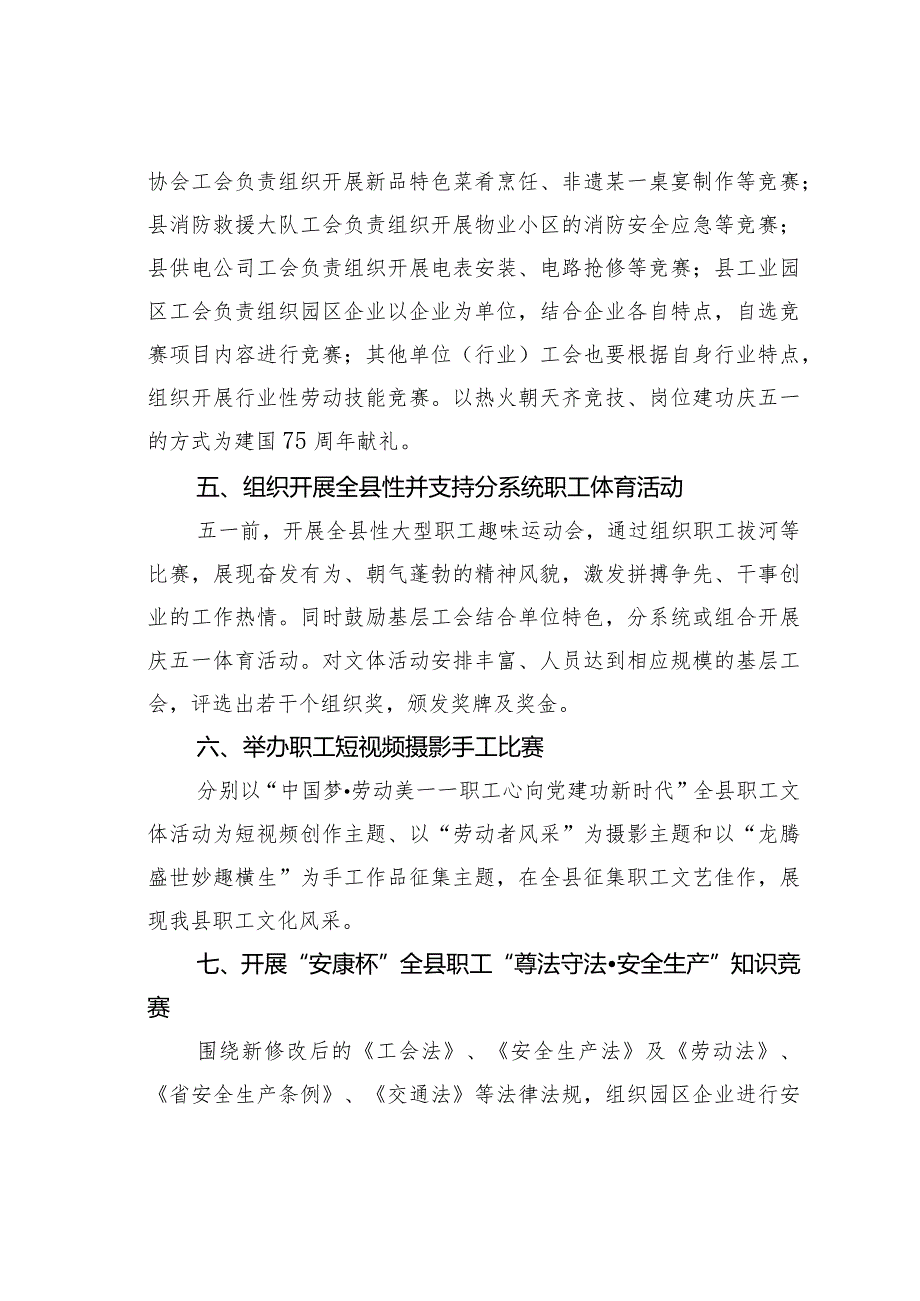 协会工会负责组织开展新品特色菜肴烹饪、非遗某一桌宴制作等竞赛；
县消防救援大队工会负责组织开展物业小区的消防安全应急等竞赛；
县供电公司工会负责组织开展电表安装、电路抢修等竞赛；县工业园
区工会负责组织园区企业以企业为单位，结合企业各自特点，自选竞
赛项目内容进行竞赛；其他单位（行业）工会也要根据自身行业特点，
组织开展行业性劳动技能竞赛。以热火朝天齐竞技、岗位建功庆五一
的方式为建国 75 周年献礼。
五、组织开展全县性并支持分系统职工体育活动
五一前，开展全县性大型职工趣味运动会，通过组织职工拔河等
比赛，展现奋发有为、朝气蓬勃的精神风貌，激发拼搏争先、干事创
业的工作热情。同时鼓励基层工会结合单位特色，分系统或组合开展
庆五一体育活动。对文体活动安排丰富、人员达到相应规模的基层工
会，评选出若干个组织奖，颁发奖牌及奖金。
六、举办职工短视频摄影手工比赛
分别以“中国梦•劳动美一一职工心向党建功新时代”全县职工文
体活动为短视频创作主题、以“劳动者风采”为摄影主题和以“龙腾
盛世妙趣横生”为手工作品征集主题，在全县征集职工文艺佳作，展
现我县职工文化风采。
七、开展“安康杯”全县职工“尊法守法•安全生产”知识竞
赛
围绕新修改后的《工会法》、《安全生产法》及《劳动法》、
《省安全生产条例》、《交通法》等法律法规，组织园区企业进行安